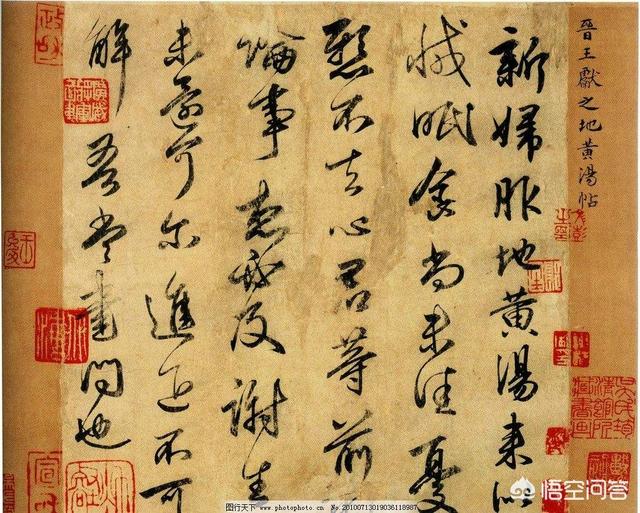 晉王獻之地黄湯帖
新婦服地黄湯来似
減眠食尚未佳憂
懸不去心君等前
論事想必及謝生
未還可尔進退不可
解吾當書問也
www.photophoto.cn No.20100713019036118987
悟空问答